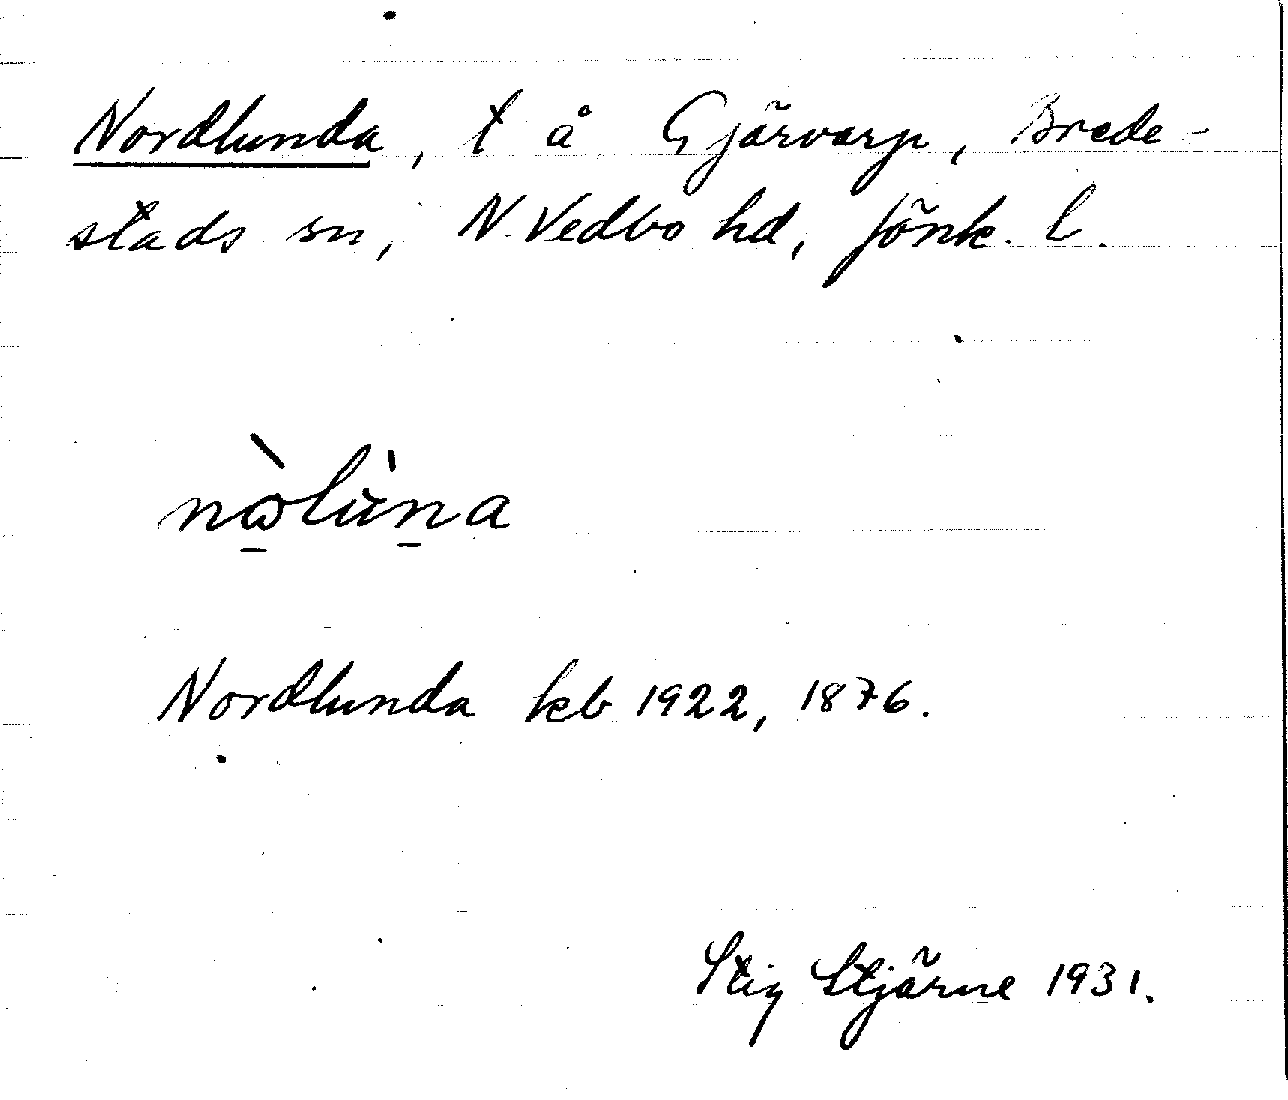 Nordlunda, t å Gjärvarp, Brede-
stads sn, N. Vedbo hd, Jönk. l.
nɷ̀lùna
Nordlunda kb 1922, 1876.
Stig Stjärne 1931.